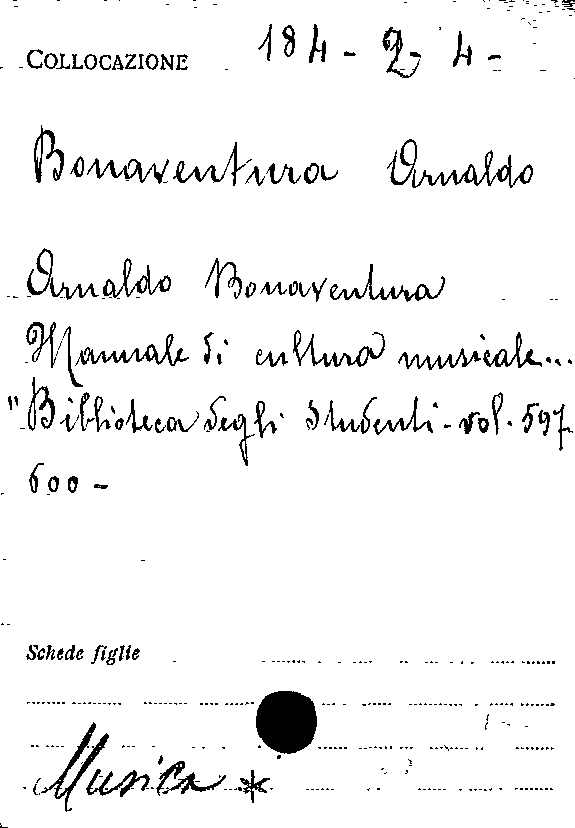 COLLOCAZIONE 184-2-4-
Bonaventura Arnaldo
Arnaldo Bonaventura
Manuale di cultura musicale...
"Biblioteca degli Studenti - vol. 597
600 -
Schede figlie
Musica *